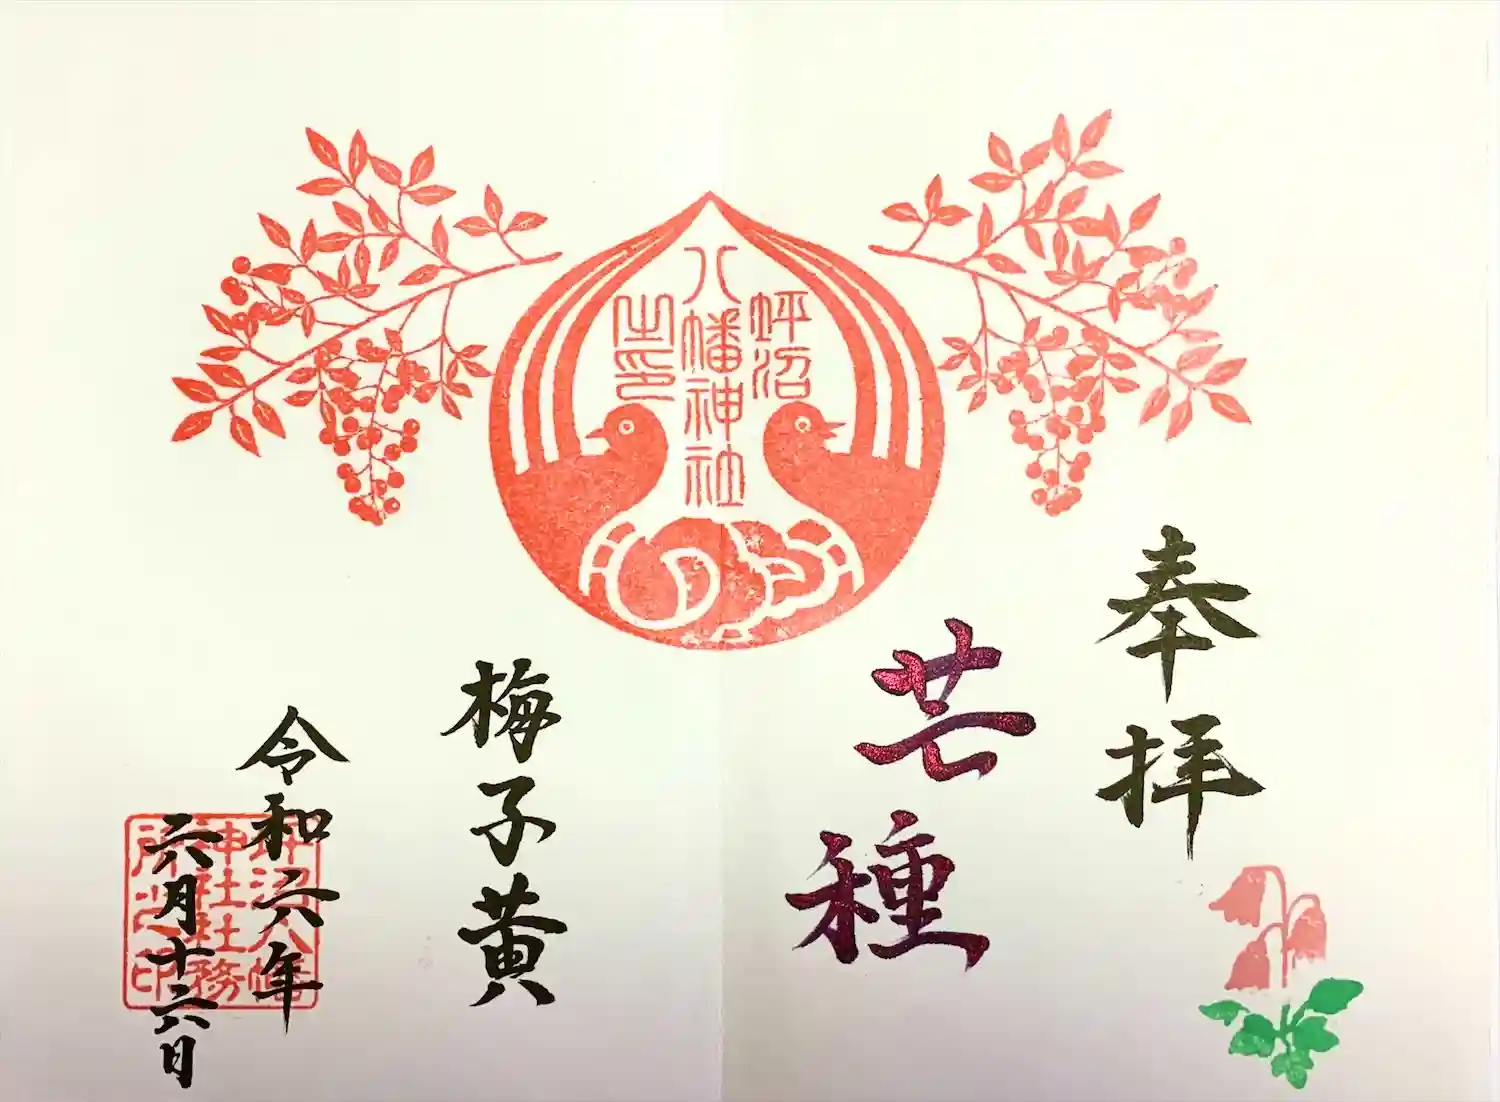 奉拝
芒種
坪沼
八幡神社
之印
梅子黄
令和六年
六月十六日
坪沼八幡
神社社務
所之印